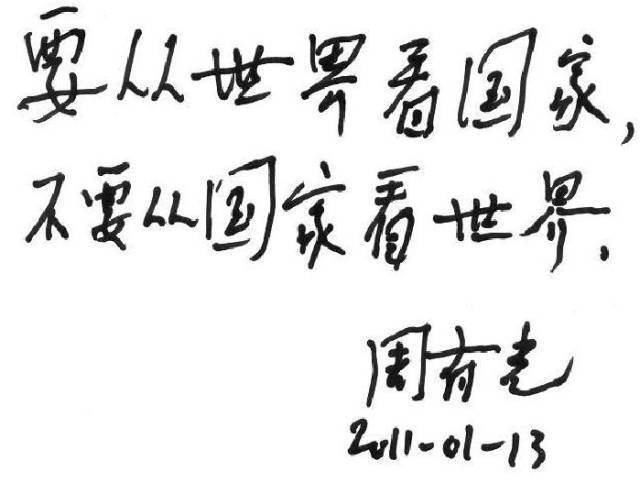 要从世界看国家,
不要从国家看世界.
周有光
2011-01-13